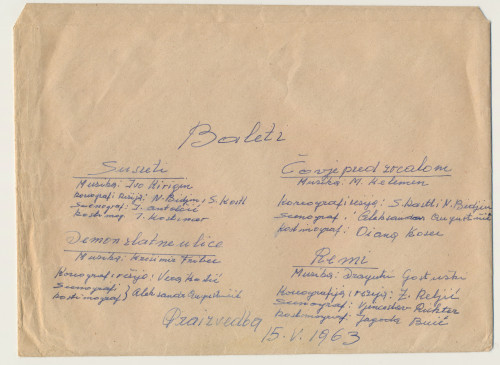 Baleti
Susreti
Muzika: Ivo Kirigin
koreograf i režija: N. Bedjin, S. Kastl
Scenograf: J.
kostimog
Demon zlatne ulice
Muzika: Krešimir Fribec
Koreograf i režija: Vera
Scenograf i
kostimograf } Aleksandar Augustinčić
Čovjek pred zrcalom
Muzika: M. Kelemen
koreograf i režija: S. Kastl i N. Bedjin
Scenograf: Aleksandar Augustinčić
kostimograf: Diana
Ritmi
Muzika: Dragutin
Koreografija i režija: Z. Reljić
Scenograf: Vjenceslav Richter
kostimograf: Jagoda Buić
Praizvedba
15. V. 1963